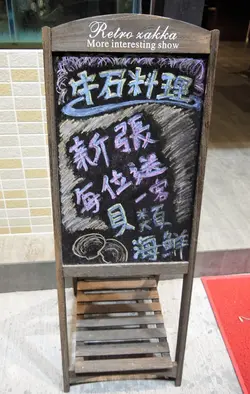 Retro zakka
More interesting show
牛石料理
新張
每位送一客
貝類
海鮮